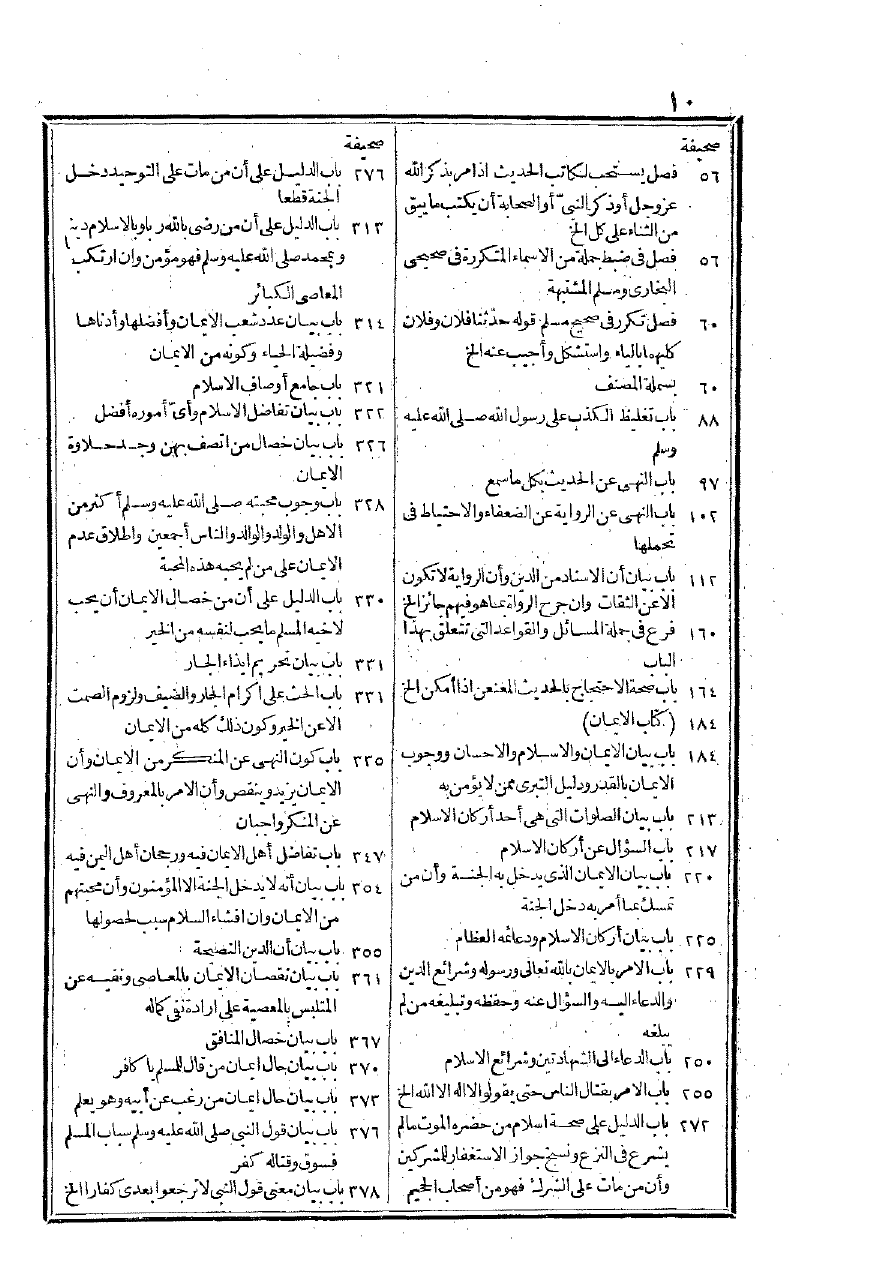 ١٠
صحيفة
٥٦ فصل يستحب لكاتب الحديث اذا مر بذكر الله
عز وجل أو ذكر النبي أو الصحابة أن يكتب ما يبق
من الثناء على كل الخ
٥٦ فصل فى ضبط جملة من الاسماء المتكررة فى صحيحى
البخارى ومسلم المشتبهة
٦٠ فصل تكرر فى صحيح مسلم قوله حدثنا فلان وفلان
كليهما بالياء واستشكل وأجيب عنه الخ
٦٠ بسملة المصنف
٨٨ باب تغليظ الكذب على رسول الله صلى الله عليه
وسلم
٩٧ باب النهى عن الحديث بكل ما سمع
١٠٢ باب النهى عن الرواية عن الضعفاء والاحتياط فى
تحملها
١١٢ باب بيان أن الاسناد من الدين وأن الرواية لا تكون
الا عن الثقات وان جرح الرواة بما هو فيهم جائز الخ
١٦٠ فرع فى جملة المسائل والقواعد التى تتعلق بهذا
الباب
١٦٤ باب صحة الاحتجاج بالحديث المعنعن اذا أمكن الخ
١٨٤ (كتاب الايمان)
١٨٤ باب بيان الايمان والاسلام والاحسان ووجوب
الايمان بالقدر ودليل التبرى ممن لا يؤمن به
٢١٣ باب بيان الصلوات التى هى أحد أركان الاسلام
٢١٧ باب السؤال عن أركان الاسلام
٢٢٠ باب بيان الايمان الذى يدخل به الجنة وأن من
تمسك بما أمر به دخل الجنة
٢٢٥ باب بيان أركان الاسلام ودعائمه العظام
٢٢٩ باب الامر بالايمان بالله تعالى ورسوله وشرائع الدين
والدعاء اليه والسؤال عنه وحفظه وتبليغه من لم
يبلغه
٢٥٠ باب الدعاء الى الشهادتين وشرائع الاسلام
٢٥٥ باب الامر بقتال الناس حتى يقولوا لا اله الا الله الخ
٢٧٢ باب الدليل على صحة اسلام من حضره الموت مالم
يشرع فى النزع ونسخ جواز الاستغفار للمشركين
وأن من مات على الشرك فهو من أصحاب الجحيم
صحيفة
٢٧٦ باب الدليل على أن من مات على التوحيد دخل
الجنة قطعا
٣١٣ باب الدليل على أن من رضى بالله ربا وبالاسلام دينا
وبمحمد صلى الله عليه وسلم فهو مؤمن وان ارتكب
المعاصى الكبائر
٣١٤ باب بيان عدد شعب الايمان وأفضلها وأدناها
وفضيلة الحياء وكونه من الايمان
٣٢١ باب جامع أوصاف الاسلام
٣٢٢ باب بيان تفاضل الاسلام وأى أموره أفضل
٣٢٦ باب بيان خصال من اتصف بهن وجد حلاوة
الايمان
٣٢٨ باب وجوب محبته صلى الله عليه وسلم أكثر من
الاهل والولد والوالد والناس أجمعين واطلاق عدم
الايمان على من لم يحبه هذه المحبة
٣٣٠ باب الدليل على أن من خصال الايمان أن يحب
لاخيه المسلم ما يحب لنفسه من الخير
٣٣١ باب بيان تحريم ايذاء الجار
٣٣١ باب الحث على اكرام الجار والضيف ولزوم الصمت
الا عن الخير وكون ذلك كله من الايمان
٣٣٥ باب كون النهى عن المنكر من الايمان وأن
الايمان يزيد وينقص وأن الامر بالمعروف والنهى
عن المنكر واجبان
٣٤٧ باب تفاضل أهل الايمان فيه ورجحان أهل اليمن فيه
٣٥٤ باب بيان أنه لا يدخل الجنة الا المؤمنون وأن محبتهم
من الايمان وان افشاء السلام سبب لحصولها
٣٥٥ باب بيان أن الدين النصيحة
٣٦١ باب بيان نقصان الايمان بالمعاصى ونفيه عن
المتلبس بالمعصية على ارادة نفى كماله
٣٦٧ باب بيان خصال المنافق
٣٧٠ باب بيان حال ايمان من قال للمسلم يا كافر
٣٧٣ باب بيان حال ايمان من رغب عن أبيه وهو يعلم
٣٧٦ باب بيان قول النبى صلى الله عليه وسلم سباب المسلم
فسوق وقتاله كفر
٣٧٨ باب بيان معنى قول النبى لا ترجعوا بعدى كفارا الخ